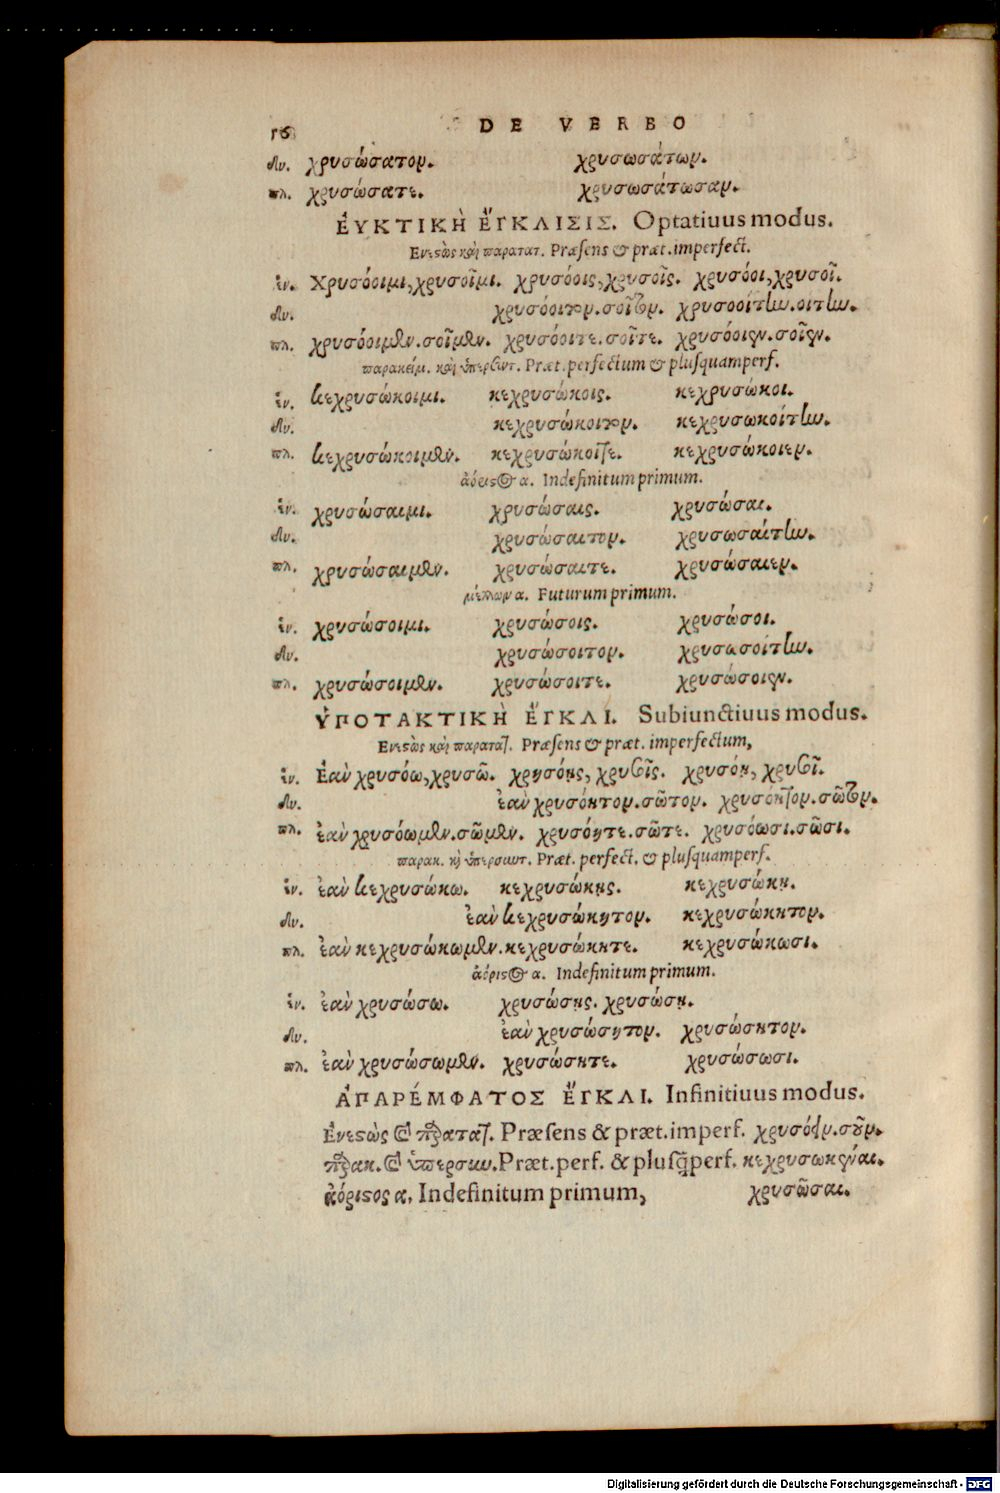 16 DE VERBO
δυ. χρυσώσατον. χρυσωσάτων.
πλ. χρυσώσατε. χρυσωσάτωσαν.
ἘΥΚΤΙΚῊ ἜΓΚΛΙΣΙΣ. Optatiuus modus.
Ενεϛὼς καὶ παρατατ. Præsens & præt. imperfect.
ἑν. Χρυσόοιμι, χρυσοῖμι. χρυσόοις, χρυσοῖς. χρυσόοι, χρυσοῖ.
δυ. χρυσόοιτον. σοῖτον. χρυσοοίτην. οιτην.
πλ. χρυσόοιμεν. σοῖμεν. χρυσόοιτε. σοῖτε. χρυσόοιεν. σοῖεν.
παρακείμ. καὶ ὑπερσυντ. Præt. perfectum & plusquamperf.
ἑν. κεχρυσώκοιμι. κεχρυσώκοις. κεχρυσώκοι.
δυ. κεχρυσώκοιτον. κεχρυσωκοίτην.
πλ. κεχρυσώκοιμεν. κεχρυσώκοιτε. κεχρυσώκοιεν.
ἀόριϛος α. Indefinitum primum.
ἑν. χρυσώσαιμι. χρυσώσαις. χρυσώσαι.
δυ. χρυσώσαιτον. χρυσωσαίτην.
πλ. χρυσώσαιμεν. χρυσώσαιτε. χρυσώσαιεν.
μέλλων α. Futurum primum.
ἑν. χρυσώσοιμι. χρυσώσοις. χρυσώσοι.
δυ. χρυσώσοιτον. χρυσωσοίτην.
πλ. χρυσώσοιμεν. χρυσώσοιτε. χρυσώσοιεν.
ὙΠΟΤΑΚΤΙΚῊ ἜΓΚΛΙ. Subiunctiuus modus.
Ενεϛὼς καὶ παρατατ. Præsens & præt. imperfectum,
ἑν. Ἐὰν χρυσόω, χρυσῶ. χρυσόῃς, χρυσοῖς. χρυσόῃ, χρυσοῖ.
δυ. ἐὰν χρυσόητον. σῶτον. χρυσόητον. σῶτον.
πλ. ἐὰν χρυσόωμεν. σῶμεν. χρυσόητε. σῶτε. χρυσόωσι. σῶσι.
παρακ. κὶ ὑπερσυντ. Præt. perfect. & plusquamperf.
ἑν. ἐὰν κεχρυσώκω. κεχρυσώκῃς. κεχρυσώκῃ.
δυ. ἐὰν κεχρυσώκητον. κεχρυσώκητον.
πλ. ἐὰν κεχρυσώκωμεν. κεχρυσώκητε. κεχρυσώκωσι.
ἀόριϛος α. Indefinitum primum.
ἑν. ἐὰν χρυσώσω. χρυσώσῃς. χρυσώσῃ.
δυ. ἐὰν χρυσώσητον. χρυσώσητον.
πλ. ἐὰν χρυσώσωμεν. χρυσώσητε. χρυσώσωσι.
ἈΠΑΡΈΜΦΑΤΟΣ ἜΓΚΛΙ. Infinitiuus modus.
Ἐνεϛὼς καὶ παρατατ. Præsens & præt. imperf. χρυσόειν. σοῦν.
παρακ. καὶ ὑπερσυν. Præt. perf. & plusq̃perf. κεχρυσωκέναι.
ἀόριϛος α, Indefinitum primum, χρυσῶσαι.
Digitalisierung gefördert durch die Deutsche Forschungsgemeinschaft - DFG